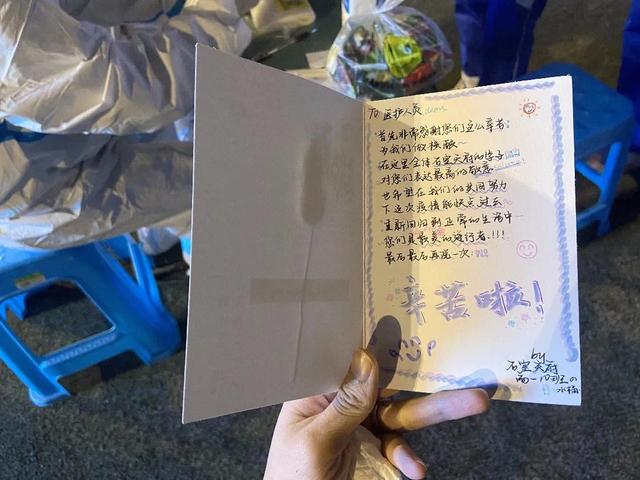 To 医护人员 dears
首先非常感谢您们这么辛苦
为我们做核酸~
在这里全体石室天府的学子
对您们表达最高的敬意
也希望在我们的共同努力
下这次疫情能快点过去
重新回归到正常的生活中
您们是最美的逆行者!!!
最后最后再说一次:
辛苦啦!
by
石室天府
高一10班の